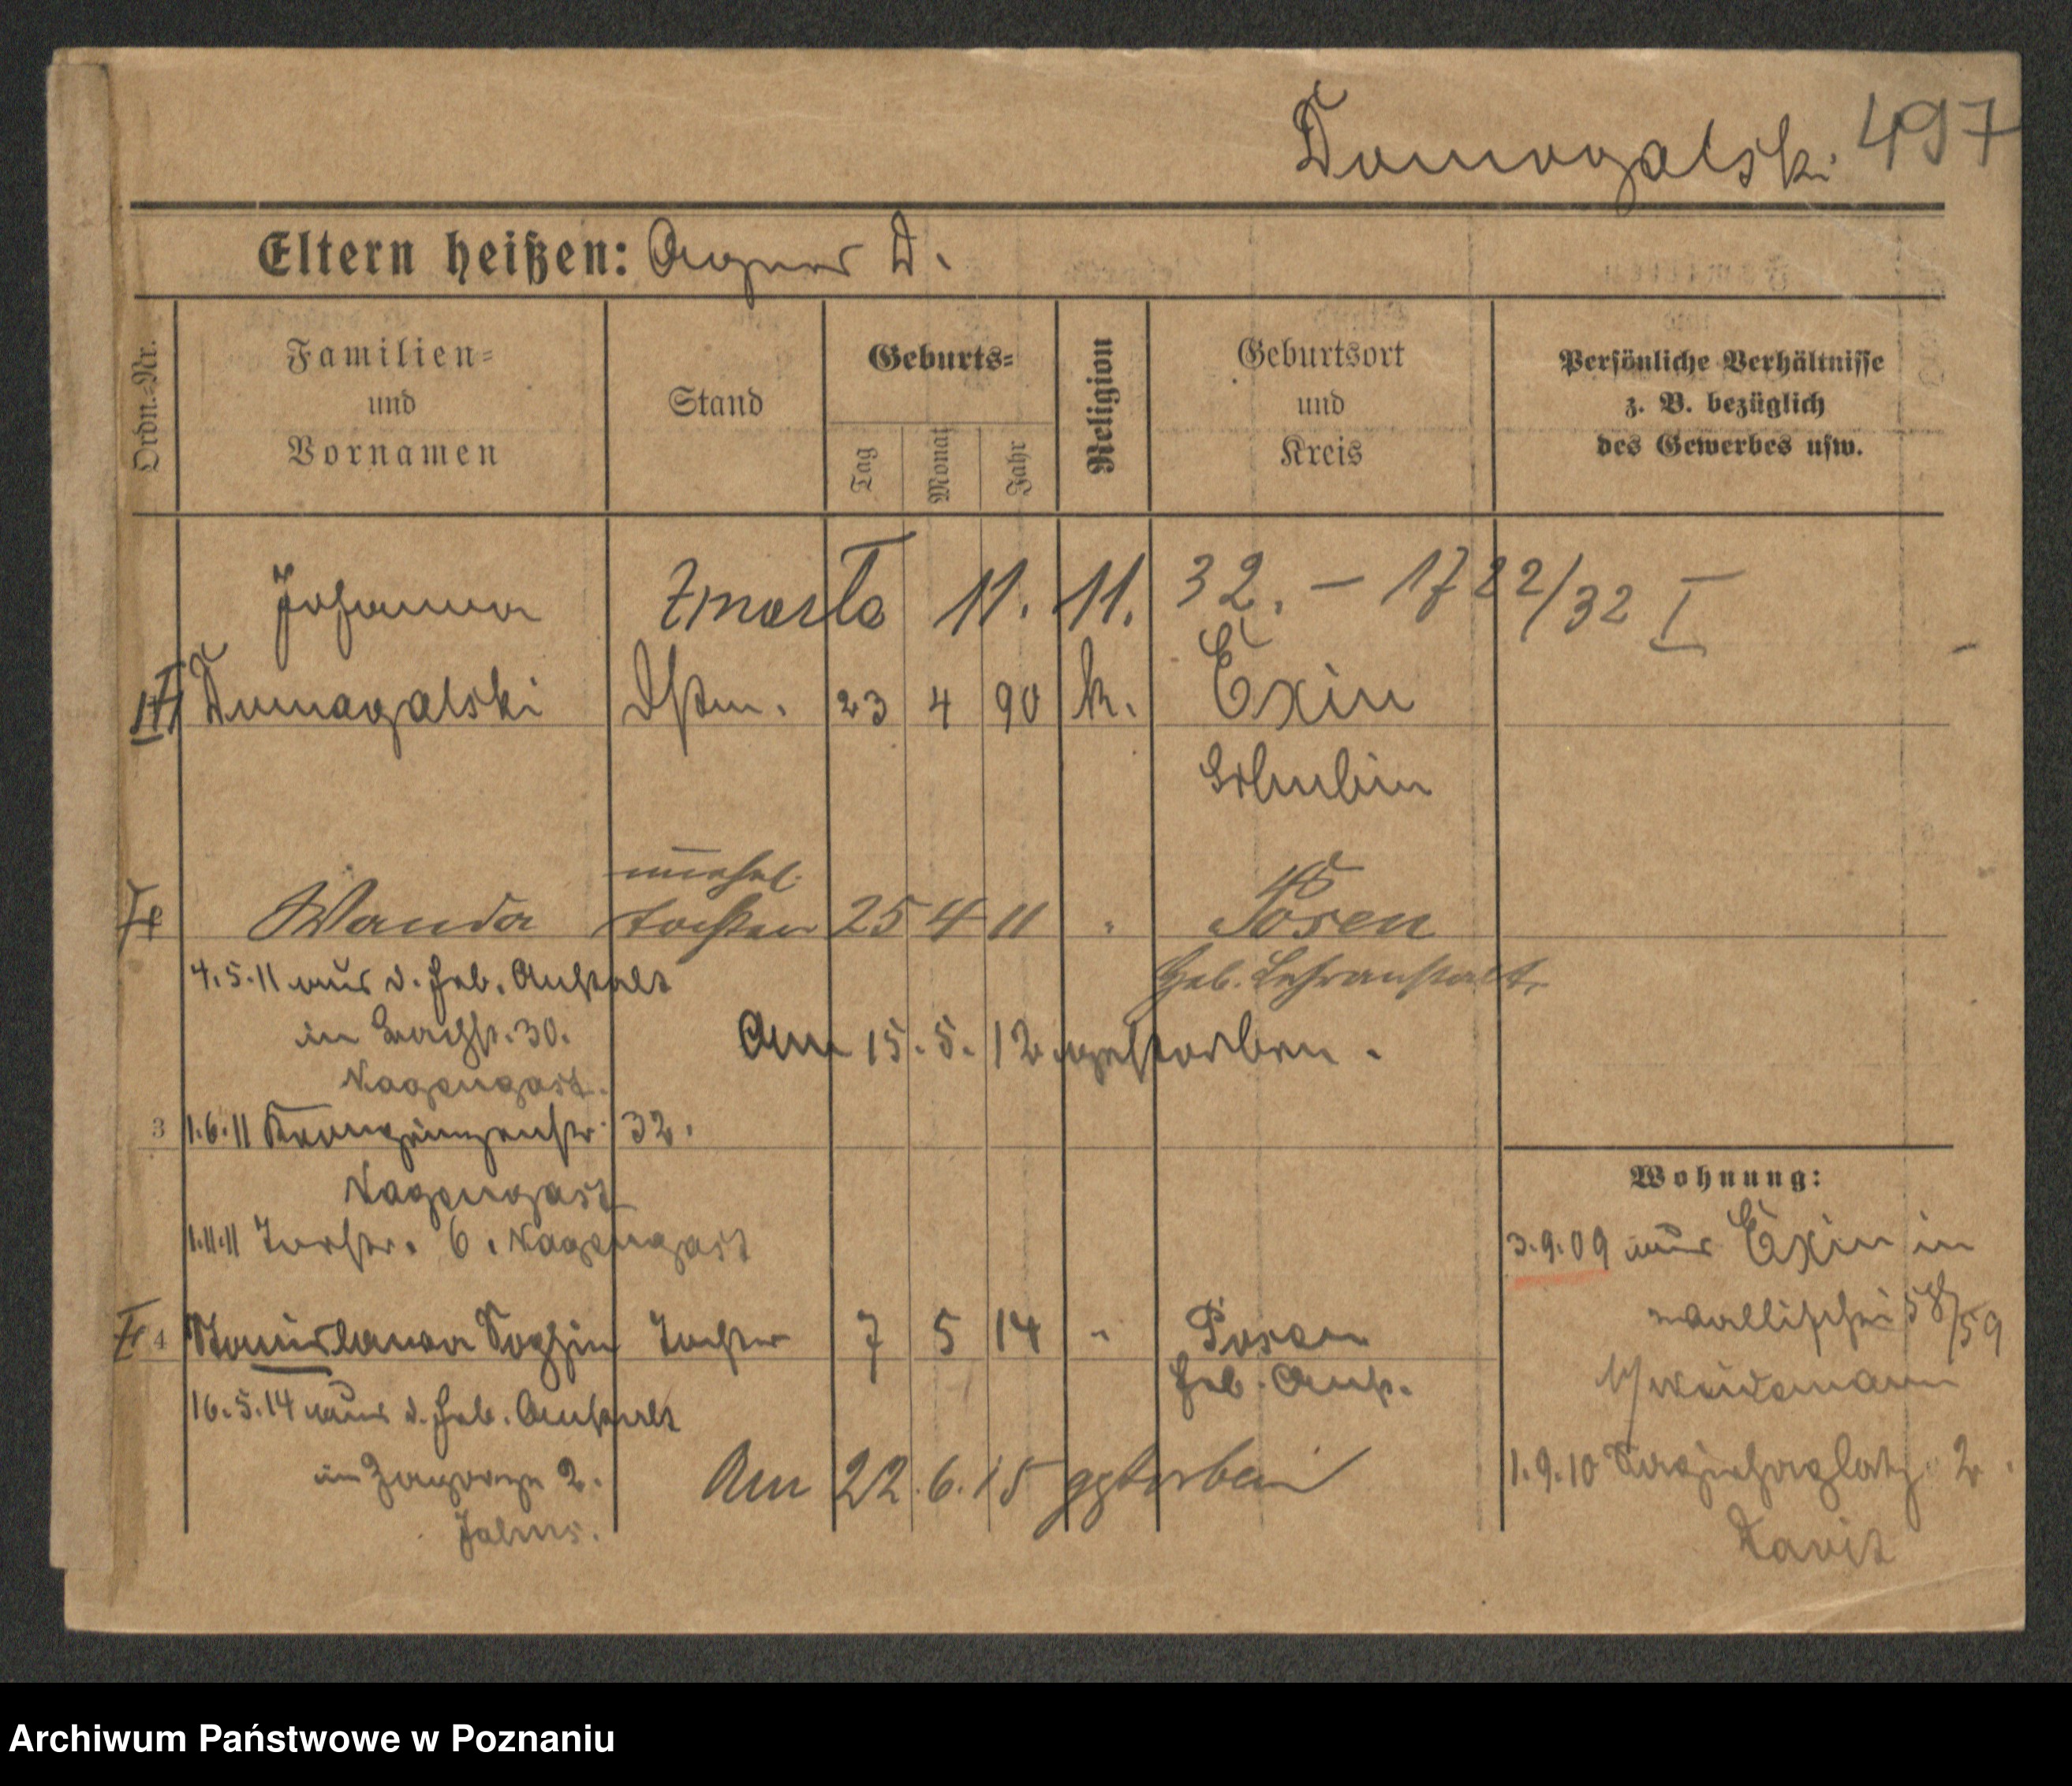 Domogalski 497
Eltern heißen: Agnes D.
Ordn.-Nr.
Familien- und Vornamen
Stand
Geburts-
Tag
Monat
Jahr
Religion
Geburtsort und Kreis
Persönliche Verhältnisse z. B. bezüglich des Gewerbes usw.
Johanna Zmarła 11. 11. 32. – 1722/32 I
Domagalski Dstm. 23 4 90 k. Exin
Schubin
unehel.
Wanda Tochter 25 4 11 " Posen
4.5.11 aus d. Heb. Anstalt
Heb. Lehranstalt.
in Bachstr. 30.
Am 15. 5. 12 gestorben.
3 1.6.11 Kronprinzenstr. 32.
1.11.11 Torstr. 6.
Wohnung:
3.9.09 aus Exin in
Wallischei 58/59
4 Stanislawa Sophie Tochter 7 5 14 " Posen
Heb. Anst.
16.5.14 aus d. Heb. Anstalt
in Zagorze 2.
Am 22. 6. 15 gestorben
1.9.10 Sapiehaplatz 2.
Archiwum Państwowe w Poznaniu